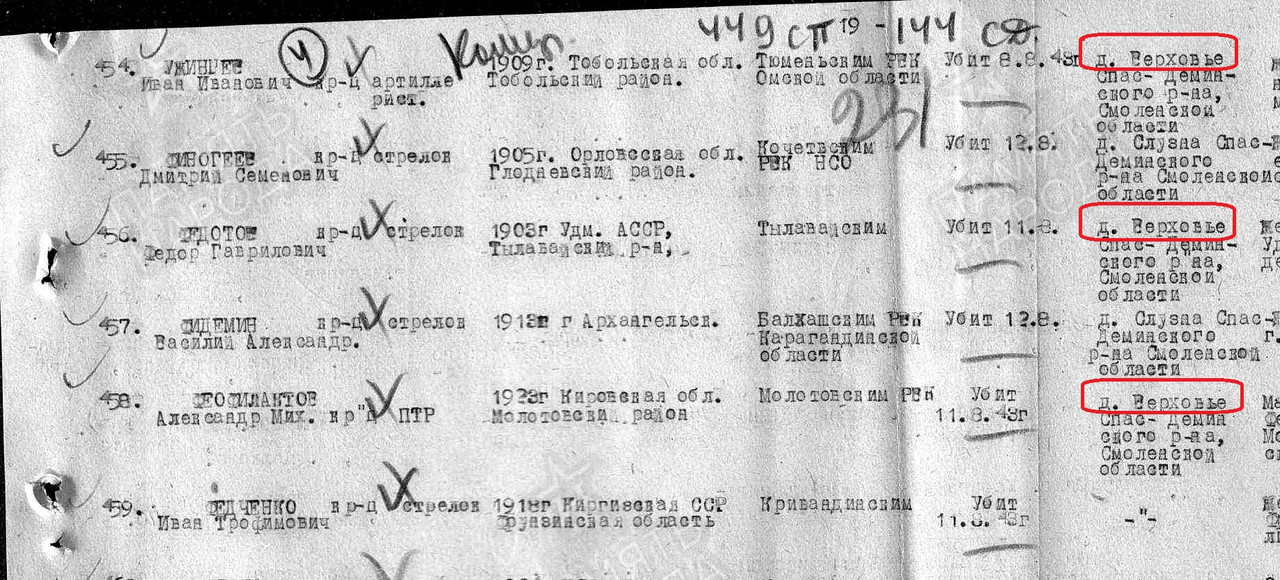 449 сп 19 - 144 сд.
4
231
454. УЖИНГЕВ кр-ц артилле 1909г. Тобольская обл. Тюменьским РВК Убит 8.8.43г д. Верховье
Иван Иванович рист. Тобольский район. Омской области Спас- Демин-
ского р-на,
Смоленской
области
455. ФИНОГЕЕВ кр-ц стрелок 1905г. Орловская обл. Кочетвским Убит 12.8. д. Слузна Спас-
Дмитрий Семенович Глодневский район. РВК НСО Деминского
р-на Смоленской
области
456. ФЕДОТОВ кр-ц стрелок 1903г Удм. АССР, Тылавайским Убит 11.8. д. Верховье
Федор Гаврилович Тылавайский р-н, Спас- Демин-
ского р на,
Смоленской
области
457. ФИДЕМИН кр-ц стрелок г Архангельск. Балхашским РВК Убит 12.8. д. Слузна Спас-
Василий Александр. Карагандинской Деминского
области р-на Смоленской
области
458. ФЕОФИЛАКТОВ 1923г Кировская обл. Молотовским РВК Убит д. Верховье
Александр Мих. кр"ц ПТР Молотовский район 11.8.43г Спас- Демин
ского р-на,
Смоленской
области
459. ФЕДЧЕНКО кр-ц стрелок 1918г Киргизская ССР Кривандинским Убит -"-
Иван Трофимович Фрунзинская область 11.8.43г